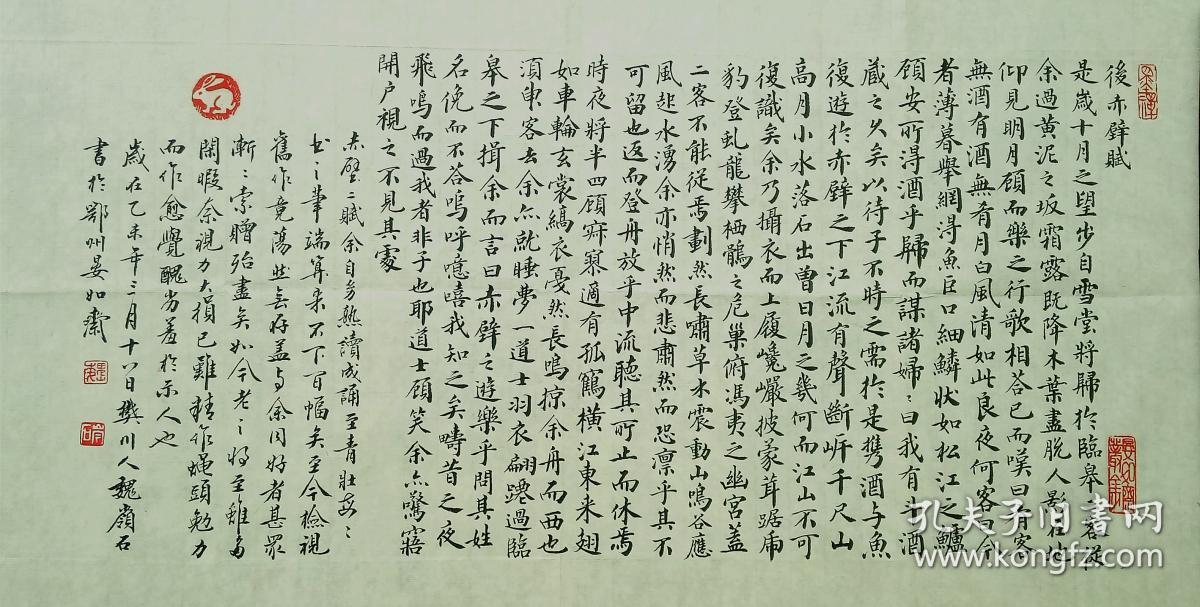 後赤壁賦
是歲十月之望步自雪堂將歸於臨皋二客從
余過黃泥之坂霜露既降木葉盡脫人影在地
仰見明月顧而樂之行歌相答已而嘆曰有客
無酒有酒無肴月白風清如此良夜何客曰今
者薄暮舉網得魚巨口細鱗狀如松江之鱸
顧安所得酒乎歸而謀諸婦婦曰我有斗酒
藏之久矣以待子不時之需於是携酒与魚
復遊於赤壁之下江流有聲斷岍千尺山
高月小水落石出曾日月之幾何而江山不可
復識矣余乃攝衣而上履巉巖披蒙茸踞虎
豹登虬龍攀栖鶻之危巢俯馮夷之幽宮蓋
二客不能從焉劃然長嘯草木震動山鳴谷應
風起水湧余亦悄然而悲肅然而恐凛乎其不
可留也返而登舟放乎中流聽其所止而休焉
時夜將半四顧寂寥適有孤鶴橫江東来翅
如車輪玄裳縞衣戛然長鳴掠余舟而西也
須臾客去余亦就睡夢一道士羽衣翩躚過臨
皋之下揖余而言曰赤壁之遊樂乎問其姓
名俛而不答嗚呼噫嘻我知之矣疇昔之夜
飛鳴而過我者非子也耶道士顧笑余亦驚寤
開户視之不見其處
赤壁二賦余自幼熟讀成誦至青壯每每
書之筆端算来不下百幅矣至今檢視
舊作竟蕩然無存盖与余同好者甚眾
漸漸索贈殆盡矣如今老之将至雖多
閑暇奈視力大損已難精作蝇頭勉力
而作愈覺醜劣羞於示人也
歲在乙未年三月十八日樊川人魏嶺石
書於鄂州晏如齋
孔夫子旧書网
www.kongfz.com